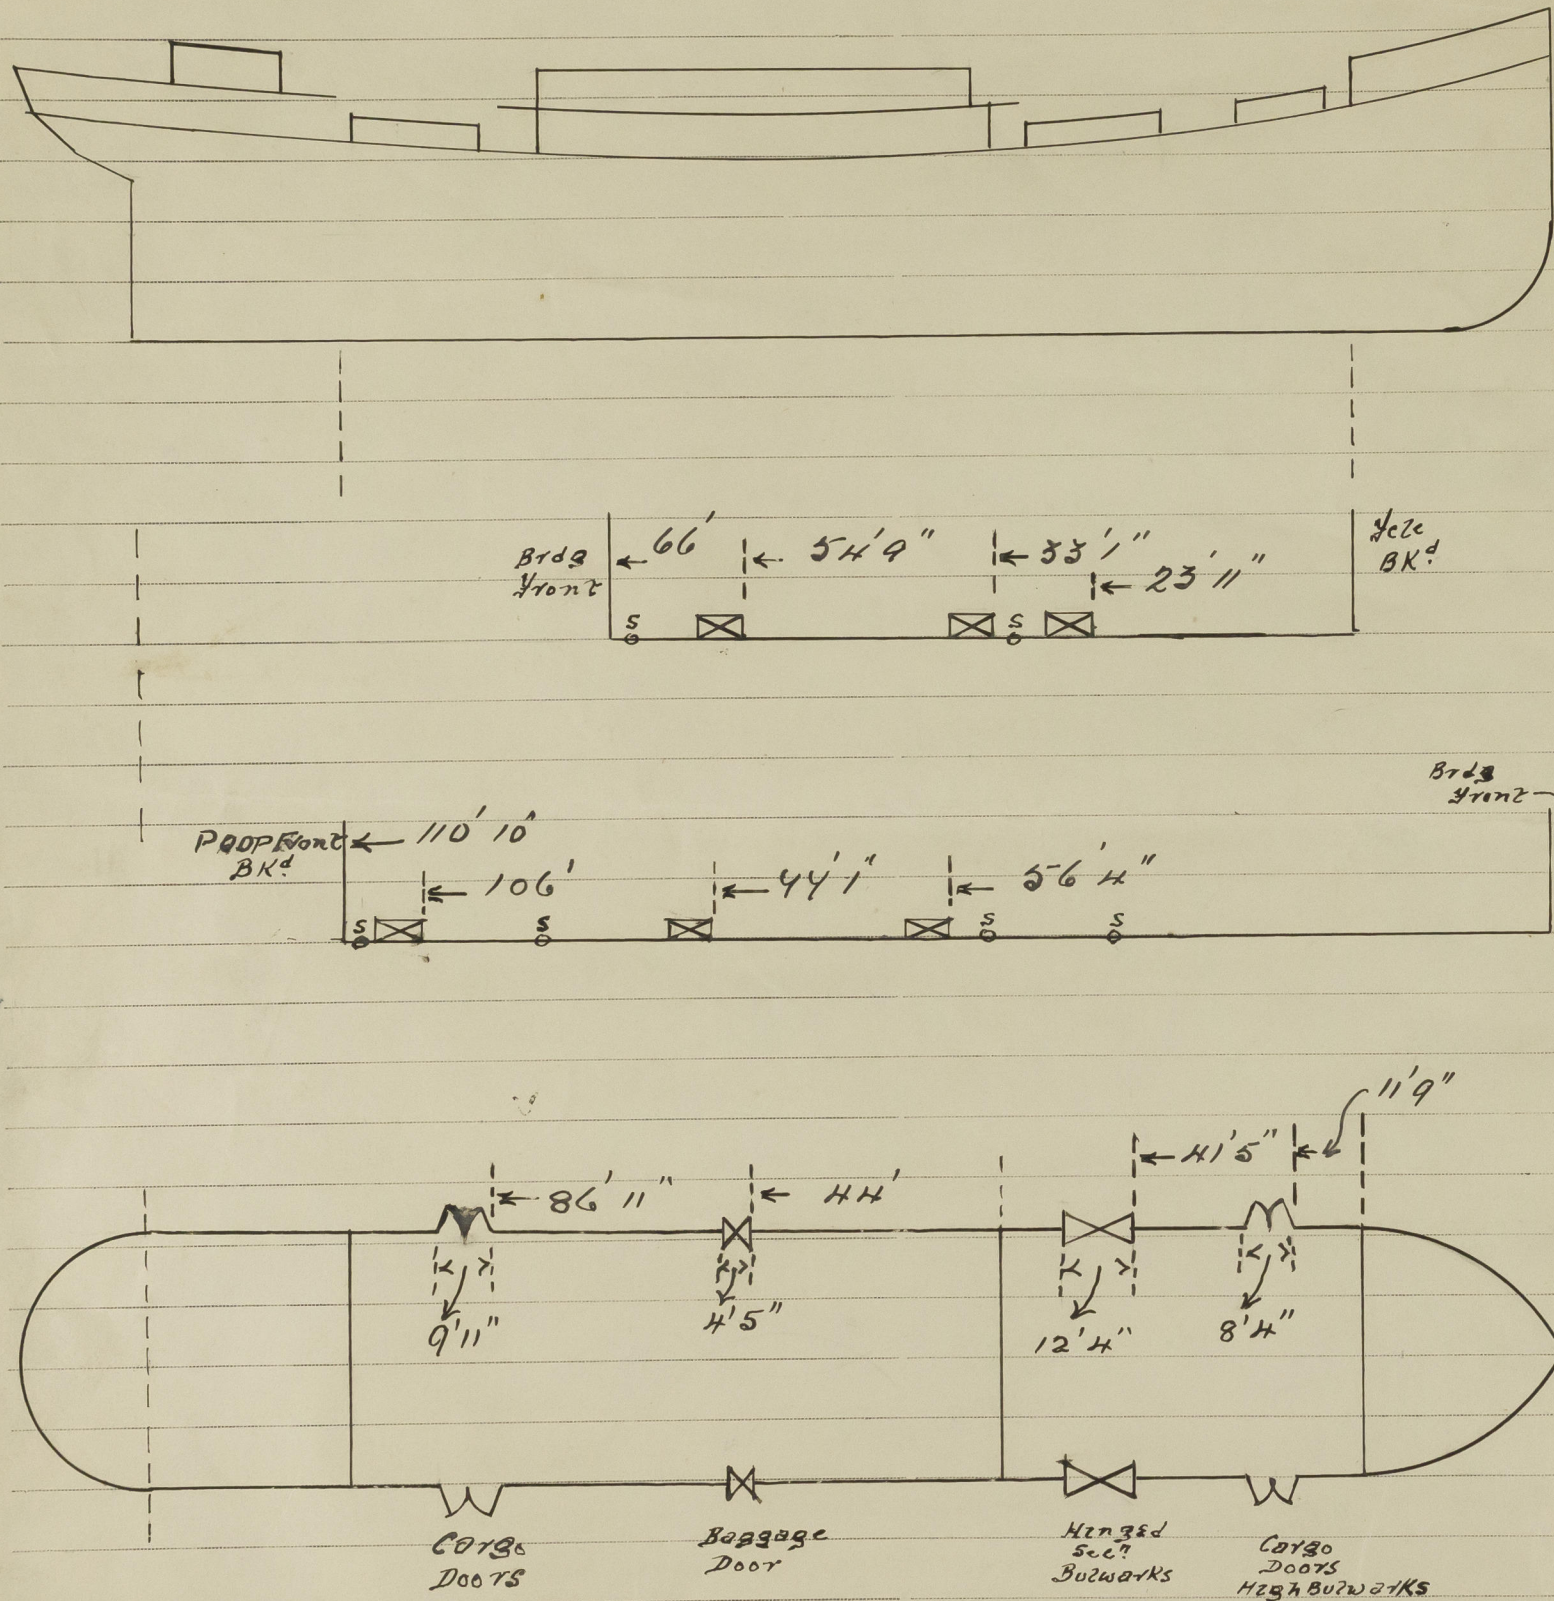 Brdg
Front
66'
54'9"
33'1"
23'11"
Fcle
BKd
S
S
Brdg
Front
Poop Front
BKd
110'10"
106'
44'1"
56'4"
S
S
S
S
11'9"
41'5"
86'11"
44'
9'11"
4'5"
12'4"
8'4"
Cargo
Doors
Baggage
Door
Hinged
Secn
Bulwarks
Cargo
Doors
High Bulwarks